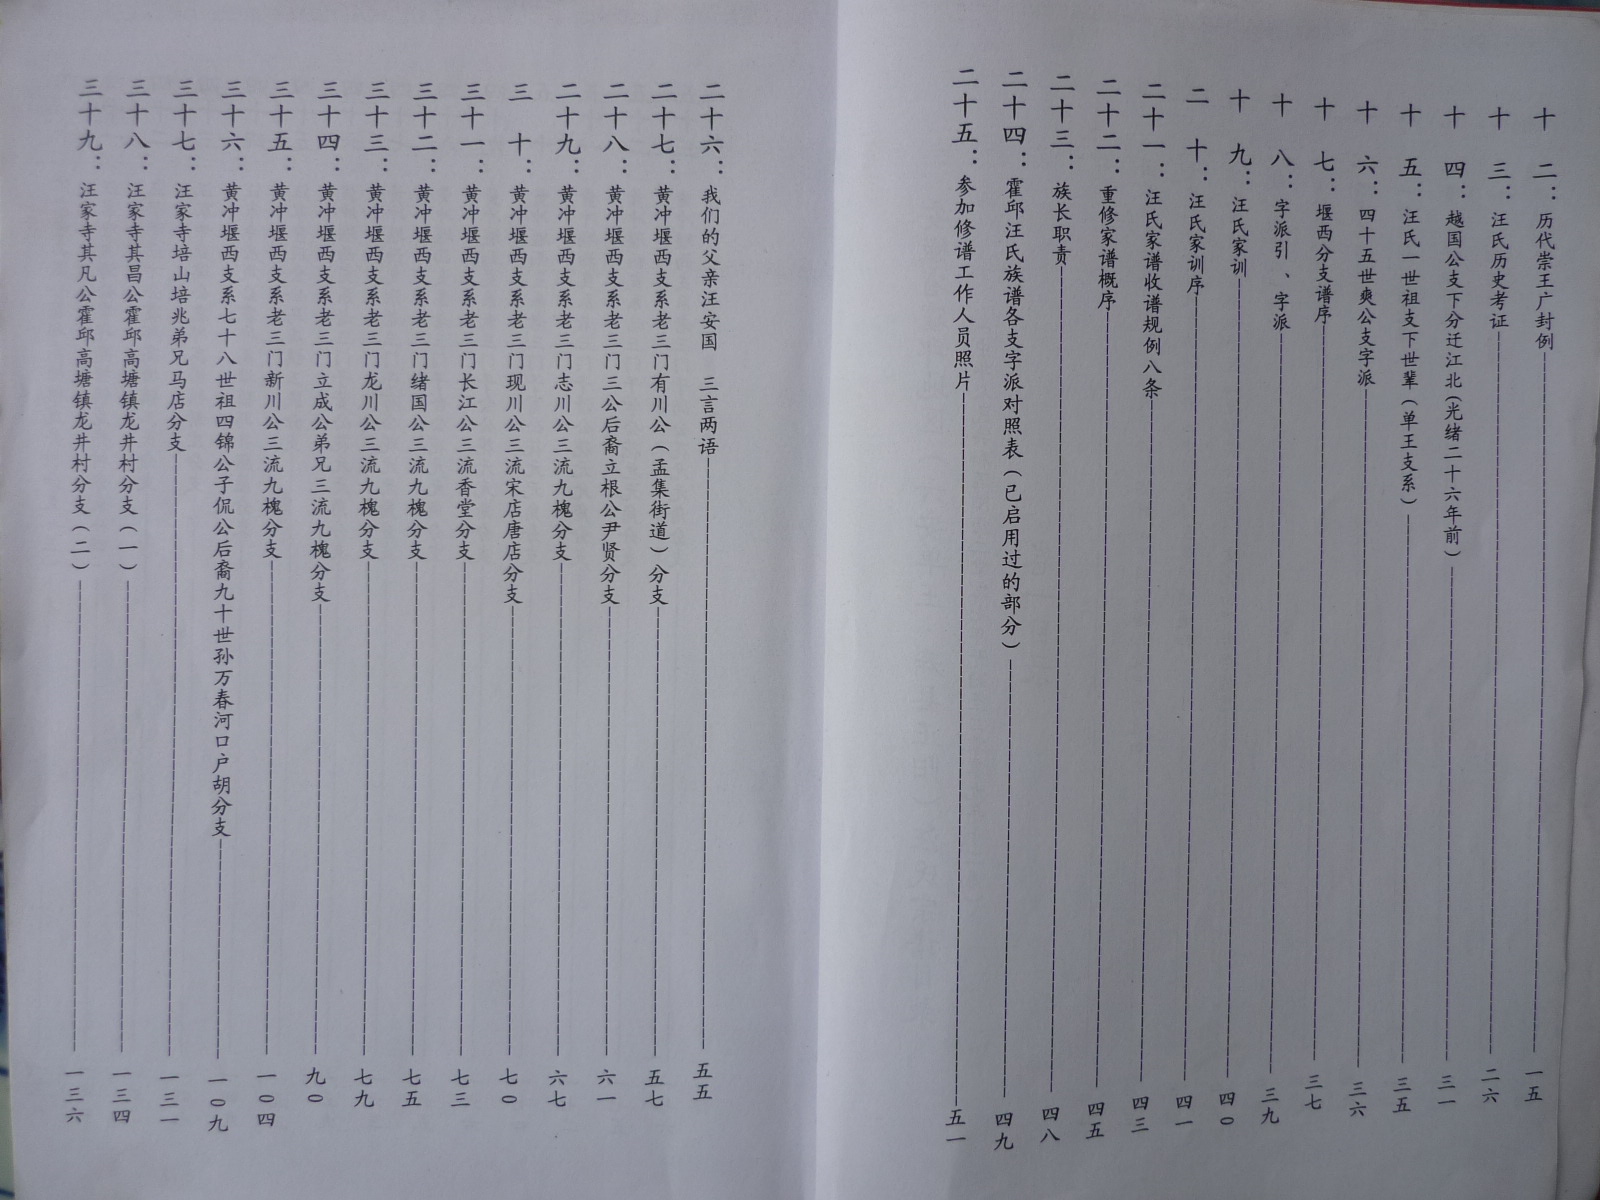 十二：历代崇王广封例 一五
十三：汪氏历史考证 二六
十四：越国公支下分迁江北(光绪二十六年前) 三一
十五：汪氏一世祖支下世辈(单王支系) 三五
十六：四十五世爽公支字派 三六
十七：堰西分支谱序 三七
十八：字派引、字派 三九
十九：汪氏家训 四〇
二十：汪氏家训序 四一
二十一：汪氏家谱收谱规例八条 四三
二十二：重修家谱概序 四五
二十三：族长职责 四八
二十四：霍邱汪氏族谱各支字派对照表(已启用过的部分) 四九
二十五：参加修谱工作人员照片 五一
二十六：我们的父亲汪安国 三言两语 五五
二十七：黄冲堰西支系老三门有川公(孟集街道)分支 五七
二十八：黄冲堰西支系老三门三公后裔立根公尹贤分支 六一
二十九：黄冲堰西支系老三门志川公三流九槐分支 六七
三十：黄冲堰西支系老三门现川公三流宋店唐店分支 七〇
三十一：黄冲堰西支系老三门长江公三流香堂分支 七三
三十二：黄冲堰西支系老三门绪国公三流九槐分支 七五
三十三：黄冲堰西支系老三门龙川公三流九槐分支 七九
三十四：黄冲堰西支系老三门立成公弟兄三流九槐分支 九〇
三十五：黄冲堰西支系老三门新川公三流九槐分支 一〇四
三十六：黄冲堰西支系七十八世祖四锦公子侃公后裔九十世孙万春河口户胡分支 一〇九
三十七：汪家寺培山培兆弟兄马店分支 一三一
三十八：汪家寺其昌公霍邱高塘镇龙井村分支(一) 一三四
三十九：汪家寺其凡公霍邱高塘镇龙井村分支(二) 一三六